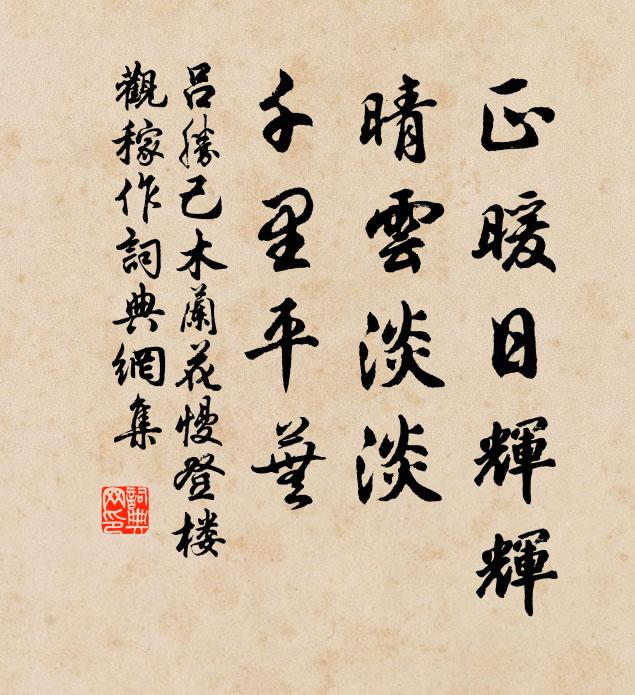 正暖日輝輝
晴雲淡淡
千里平蕪
呂勝己木蘭花慢登楼
觀稼作詞典網集
詞典網印